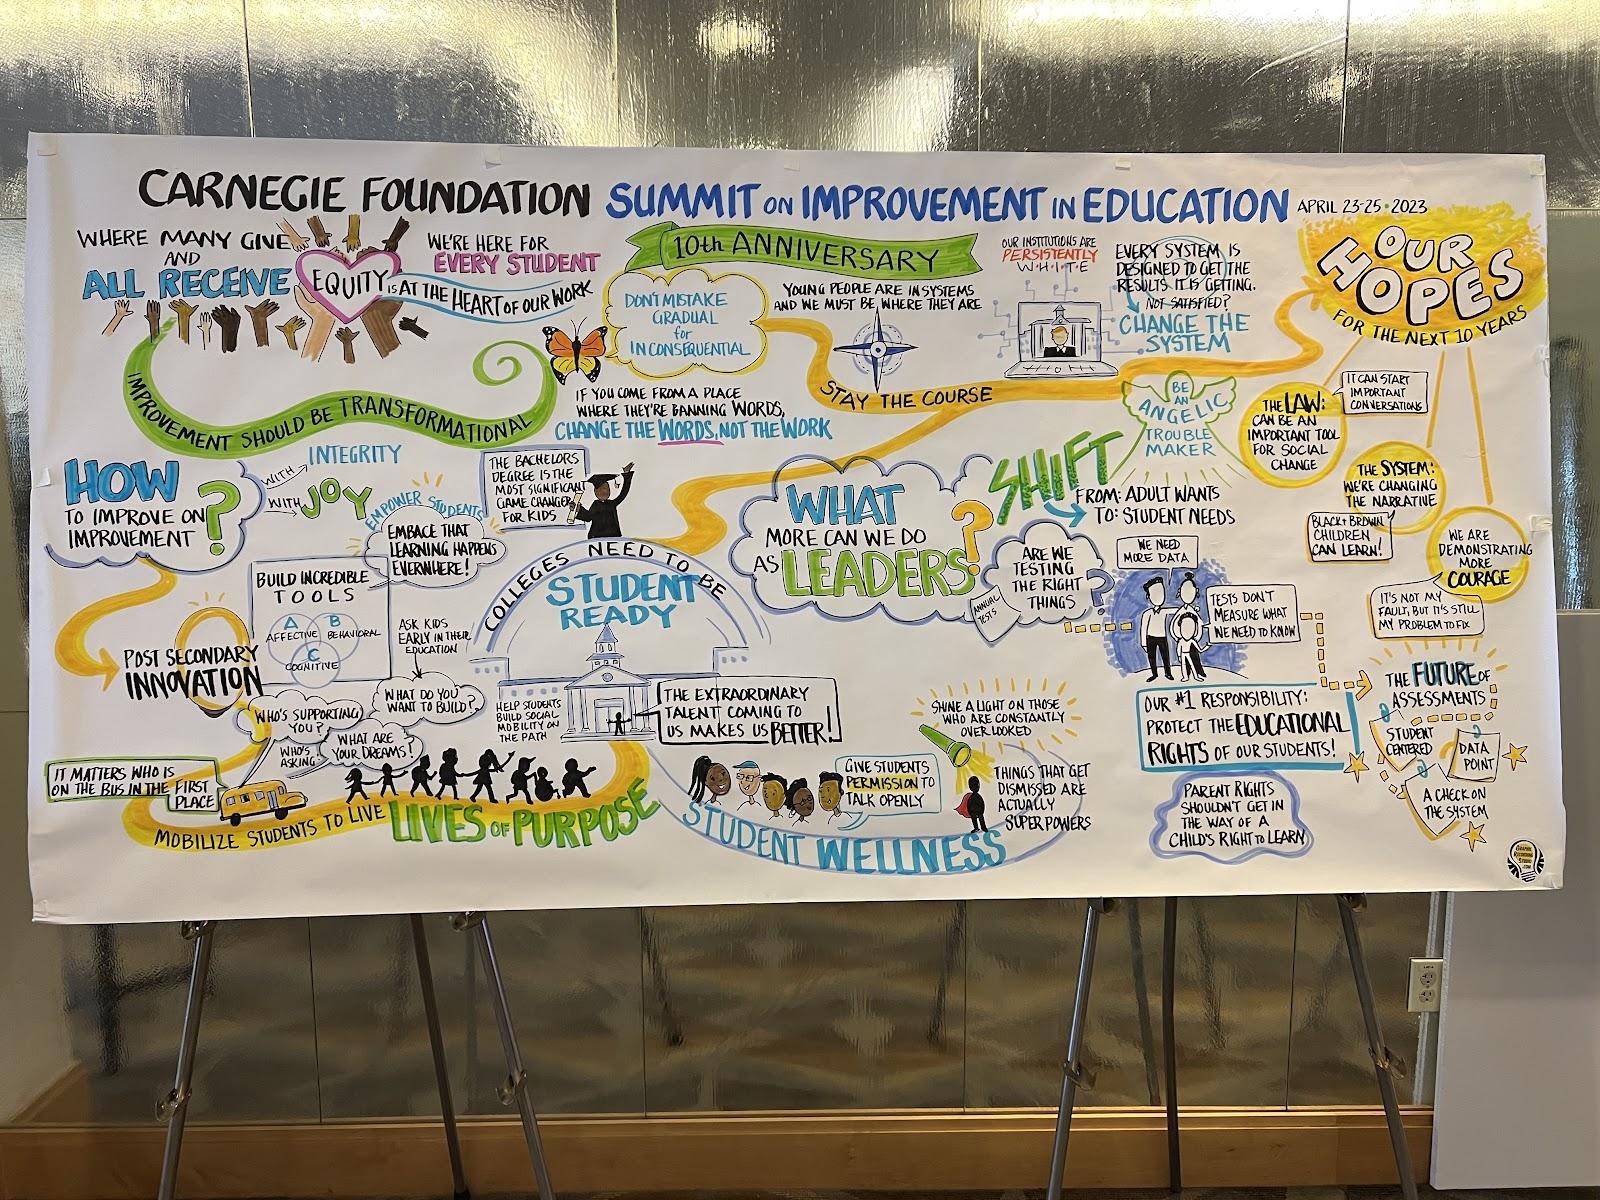 CARNEGIE FOUNDATION SUMMIT ON IMPROVEMENT IN EDUCATION APRIL 23-25 • 2023
WHERE MANY GIVE
AND
ALL RECEIVE
EQUITY IS AT THE HEART OF OUR WORK
WE'RE HERE FOR
EVERY STUDENT
10th ANNIVERSARY
DON'T MISTAKE
GRADUAL
for
INCONSEQUENTIAL
YOUNG PEOPLE ARE IN SYSTEMS
AND WE MUST BE WHERE THEY ARE
OUR INSTITUTIONS ARE
PERSISTENTLY
WHITE
EVERY SYSTEM IS
DESIGNED TO GET THE
RESULTS IT IS GETTING.
NOT SATISFIED?
CHANGE THE
SYSTEM
OUR
HOPES
FOR THE NEXT 10 YEARS
IMPROVEMENT SHOULD BE TRANSFORMATIONAL
IF YOU COME FROM A PLACE
WHERE THEY'RE BANNING WORDS,
CHANGE THE WORDS, NOT THE WORK
STAY THE COURSE
BE
AN
ANGELIC
TROUBLE
MAKER
THE LAW:
CAN BE AN
IMPORTANT TOOL
FOR SOCIAL
CHANGE
IT CAN START
IMPORTANT
CONVERSATIONS
THE SYSTEM:
WE'RE CHANGING
THE NARRATIVE
BLACK + BROWN
CHILDREN
CAN LEARN!
WE ARE
DEMONSTRATING
MORE
COURAGE
IT'S NOT MY
FAULT, BUT IT'S STILL
MY PROBLEM TO FIX
HOW
TO IMPROVE ON
IMPROVEMENT?
WITH INTEGRITY
WITH JOY
EMPOWER STUDENTS
EMBACE THAT
LEARNING HAPPENS
EVERWHERE!
THE BACHELORS
DEGREE IS THE
MOST SIGNIFICANT
GAME CHANGER
FOR KIDS
BUILD INCREDIBLE
TOOLS
A
AFFECTIVE
B
BEHAVIORAL
C
COGNITIVE
ASK KIDS
EARLY IN THEIR
EDUCATION
POST SECONDARY
INNOVATION
WHO'S SUPPORTING
YOU?
WHAT DO YOU
WANT TO BUILD?
WHAT ARE
YOUR DREAMS?
WHO'S
ASKING
IT MATTERS WHO IS
ON THE BUS IN THE FIRST
PLACE
MOBILIZE STUDENTS TO LIVE LIVES OF PURPOSE
COLLEGES NEED TO BE
STUDENT
READY
HELP STUDENTS
BUILD SOCIAL
MOBILITY ON
THE PATH
THE EXTRAORDINARY
TALENT COMING TO
US MAKES US BETTER!
WHAT
MORE CAN WE DO
AS LEADERS?
SHIFT
FROM: ADULT WANTS
TO: STUDENT NEEDS
ARE WE
TESTING
THE RIGHT
THINGS?
ANNUAL
TESTS
WE NEED
MORE DATA
TESTS DON'T
MEASURE WHAT
WE NEED TO KNOW
OUR #1 RESPONSIBILITY:
PROTECT THE EDUCATIONAL
RIGHTS OF OUR STUDENTS!
PARENT RIGHTS
SHOULDN'T GET IN
THE WAY OF A
CHILD'S RIGHT TO LEARN
THE FUTURE OF
ASSESSMENTS
STUDENT
CENTERED
DATA
POINT
A CHECK ON
THE SYSTEM
SHINE A LIGHT ON THOSE
WHO ARE CONSTANTLY
OVER LOOKED
GIVE STUDENTS
PERMISSION TO
TALK OPENLY
THINGS THAT GET
DISMISSED ARE
ACTUALLY
SUPER POWERS
STUDENT WELLNESS
GRAPHIC
RECORDING
STUDIO
.COM